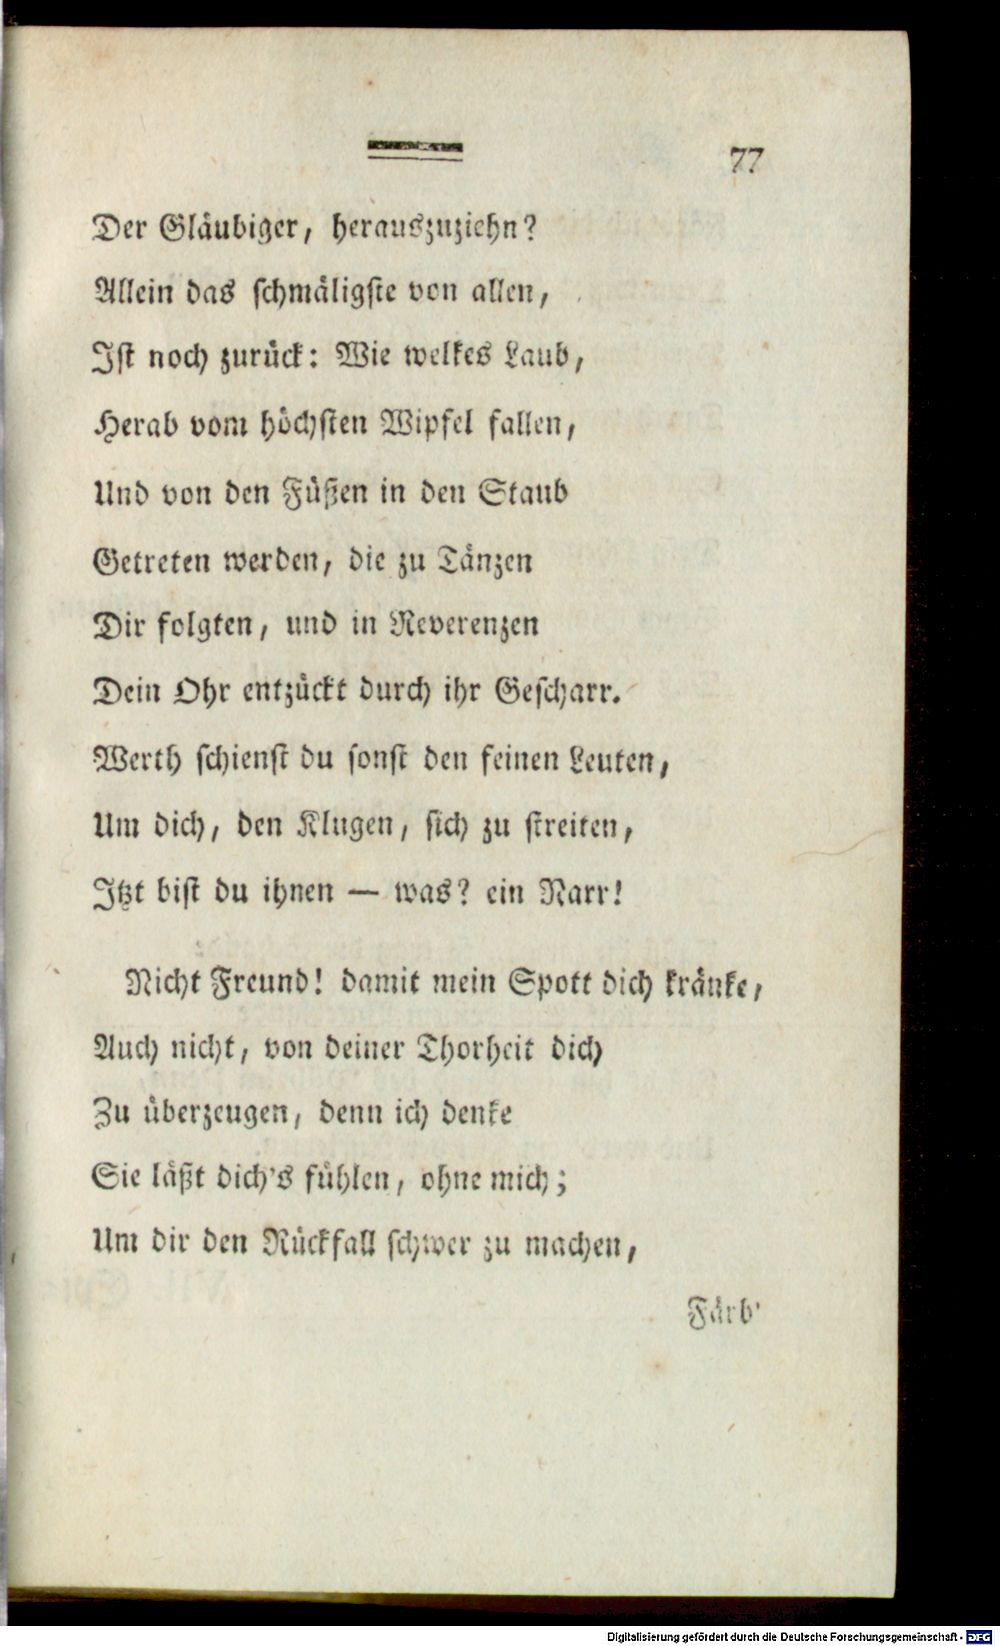 77
Der Gläubiger, herauszuziehn?
Allein das schmäligste von allen,
Ist noch zurück: Wie welkes Laub,
Herab vom höchsten Wipfel fallen,
Und von den Füßen in den Staub
Getreten werden, die zu Tänzen
Dir folgten, und in Reverenzen
Dein Ohr entzückt durch ihr Gescharr.
Werth schienst du sonst den feinen Leuten,
Um dich, den Klugen, sich zu streiten,
Itzt bist du ihnen — was? ein Narr!
Nicht Freund! damit mein Spott dich kränke,
Auch nicht, von deiner Thorheit dich
Zu überzeugen, denn ich denke
Sie läßt dich's fühlen, ohne mich;
Um dir den Rückfall schwer zu machen,
Färb'
Digitalisierung gefördert durch die Deutsche Forschungsgemeinschaft - DFG